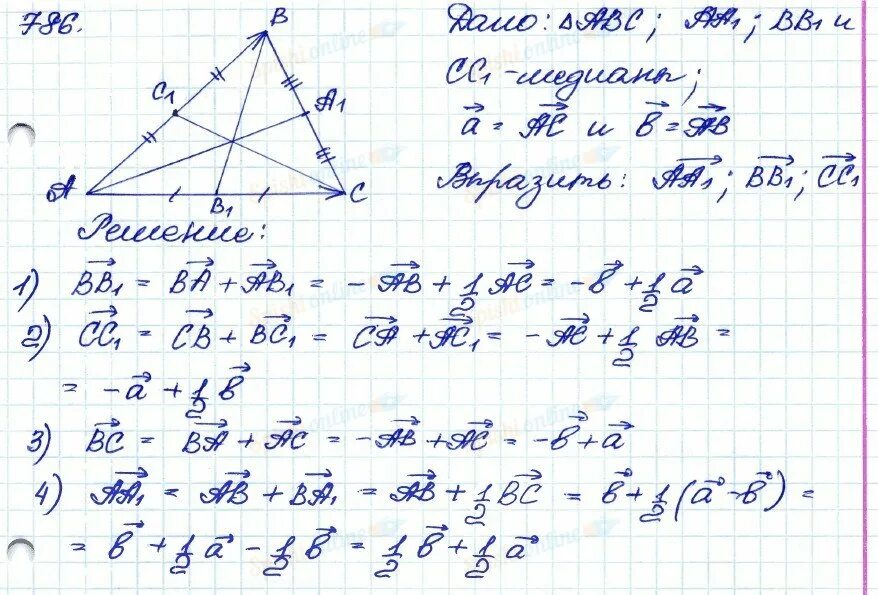 786.
B
C₁
A₁
A
B₁
C
Дано: △ABC; AA₁; BB₁ и
CC₁ - медианы;
a⃗ = AC⃗ и b⃗ = AB⃗
Выразить: AA₁⃗; BB₁⃗; CC₁⃗
Решение:
1) BB₁⃗ = BA⃗ + AB₁⃗ = - AB⃗ + 1/2 AC⃗ = -b⃗ + 1/2 a⃗
2) CC₁⃗ = CB⃗ + BC₁⃗ = CA⃗ + AC₁⃗ = - AC⃗ + 1/2 AB⃗ =
= -a⃗ + 1/2 b⃗
3) BC⃗ = BA⃗ + AC⃗ = -AB⃗ + AC⃗ = -b⃗ + a⃗
4) AA₁⃗ = AB⃗ + BA₁⃗ = AB⃗ + 1/2 BC⃗ = b⃗ + 1/2 (a⃗ - b⃗) =
= b⃗ + 1/2 a⃗ - 1/2 b⃗ = 1/2 b⃗ + 1/2 a⃗